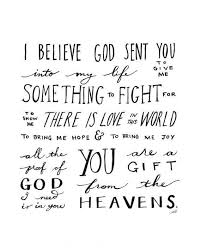 I BELIEVE GOD SENT YOU
into my life TO GIVE ME
SOMETHING TO FIGHT FOR
TO SHOW ME THERE IS LOVE IN THIS WORLD
TO BRING ME HOPE & TO BRING ME JOY
all the proof of GOD I need is in you
YOU are a GIFT from the HEAVENS.